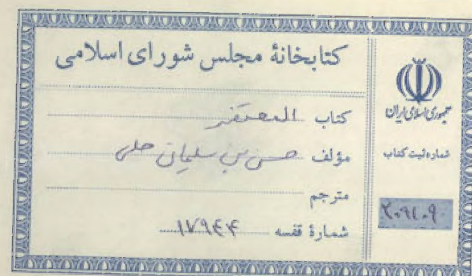 کتابخانهٔ مجلس شورای اسلامی
کتاب المحتضر
مؤلف حسن بن سلیمان حلی
مترجم
شمارهٔ قفسه ۱۷۹۴۴
جمهوری اسلامی ایران
شماره ثبت کتاب
۲۰۹۱۰۹